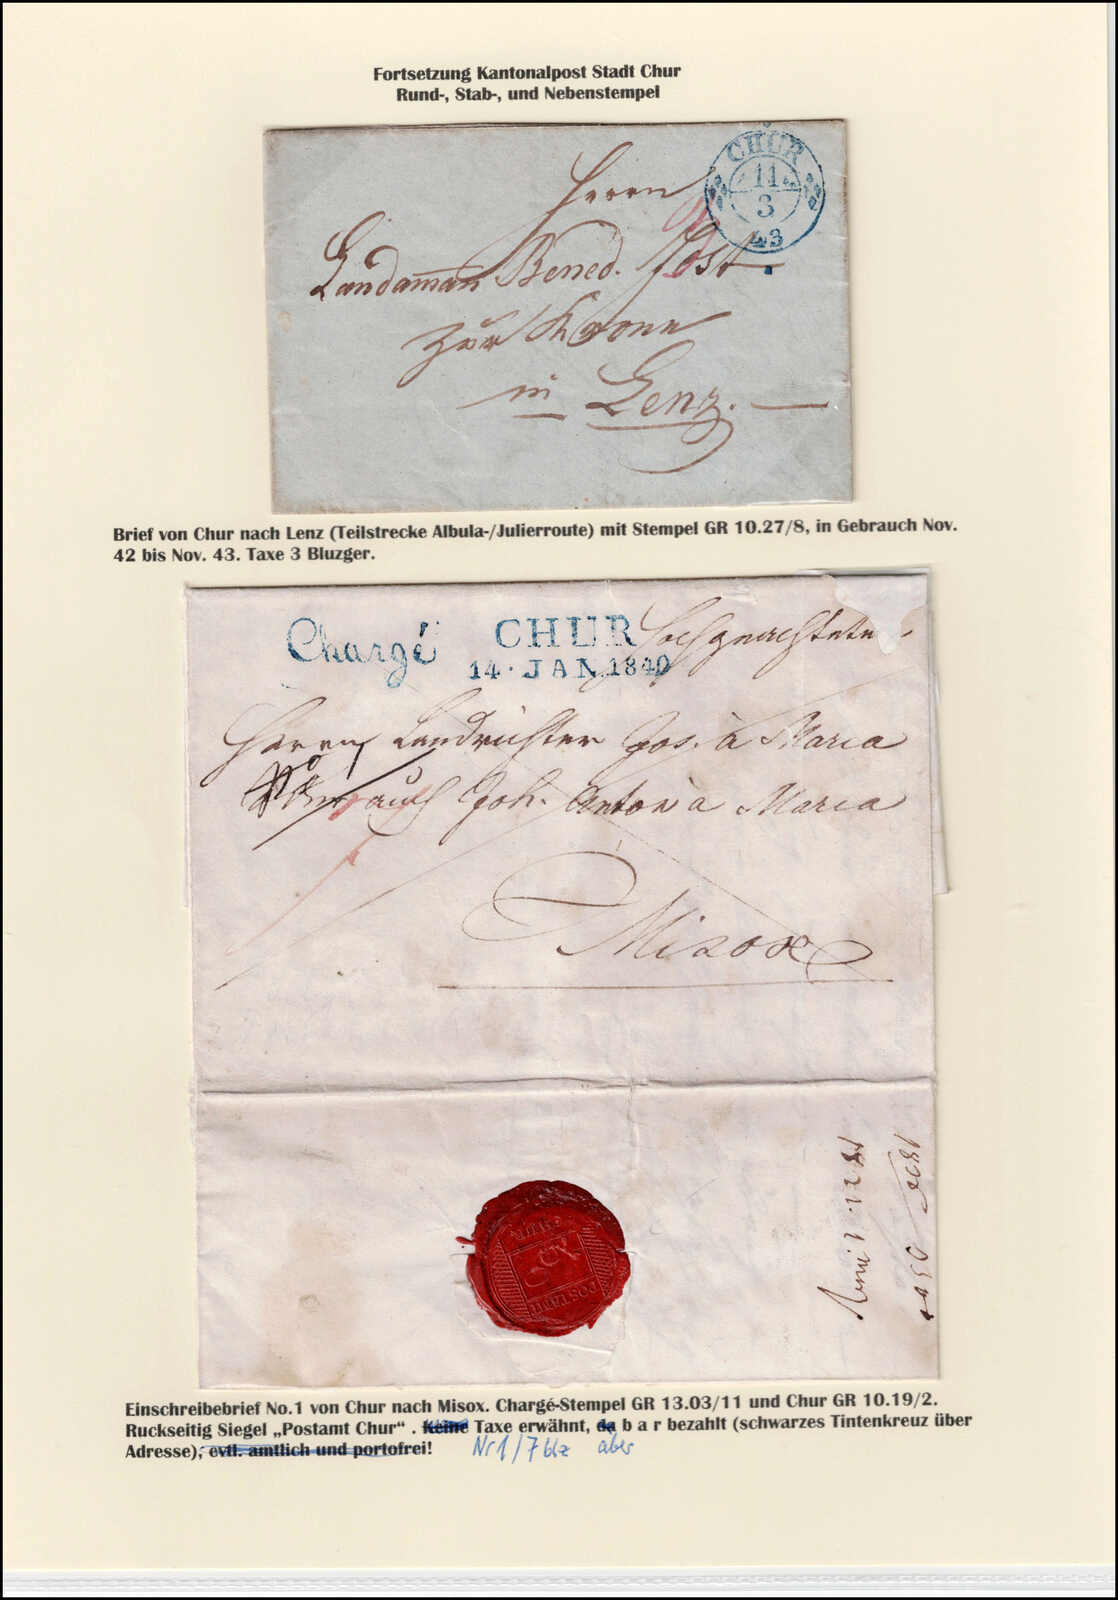 Fortsetzung Kantonalpost Stadt Chur
Rund-, Stab-, und Nebenstempel
CHUR
11
3
43
Herrn
Landamman Bened. Post.
zur Krone
in Lenz.
Brief von Chur nach Lenz (Teilstrecke Albula-/Julierroute) mit Stempel GR 10.27/8, in Gebrauch Nov.
42 bis Nov. 43. Taxe 3 Bluzger.
Chargé CHUR Hochgeachteten
14·JAN 1840
Herrn Landrichter Jos. à Marca
auch Joh. Anton à Marca
Misox
POSTAMT
CHUR
Einschreibebrief No.1 von Chur nach Misox. Chargé-Stempel GR 13.03/11 und Chur GR 10.19/2.
Ruckseitig Siegel „Postamt Chur“ . Keine Taxe erwähnt, da b a r bezahlt (schwarzes Tintenkreuz über
Adresse), evtl. amtlich und portofrei! Nr 1/7 blz aber